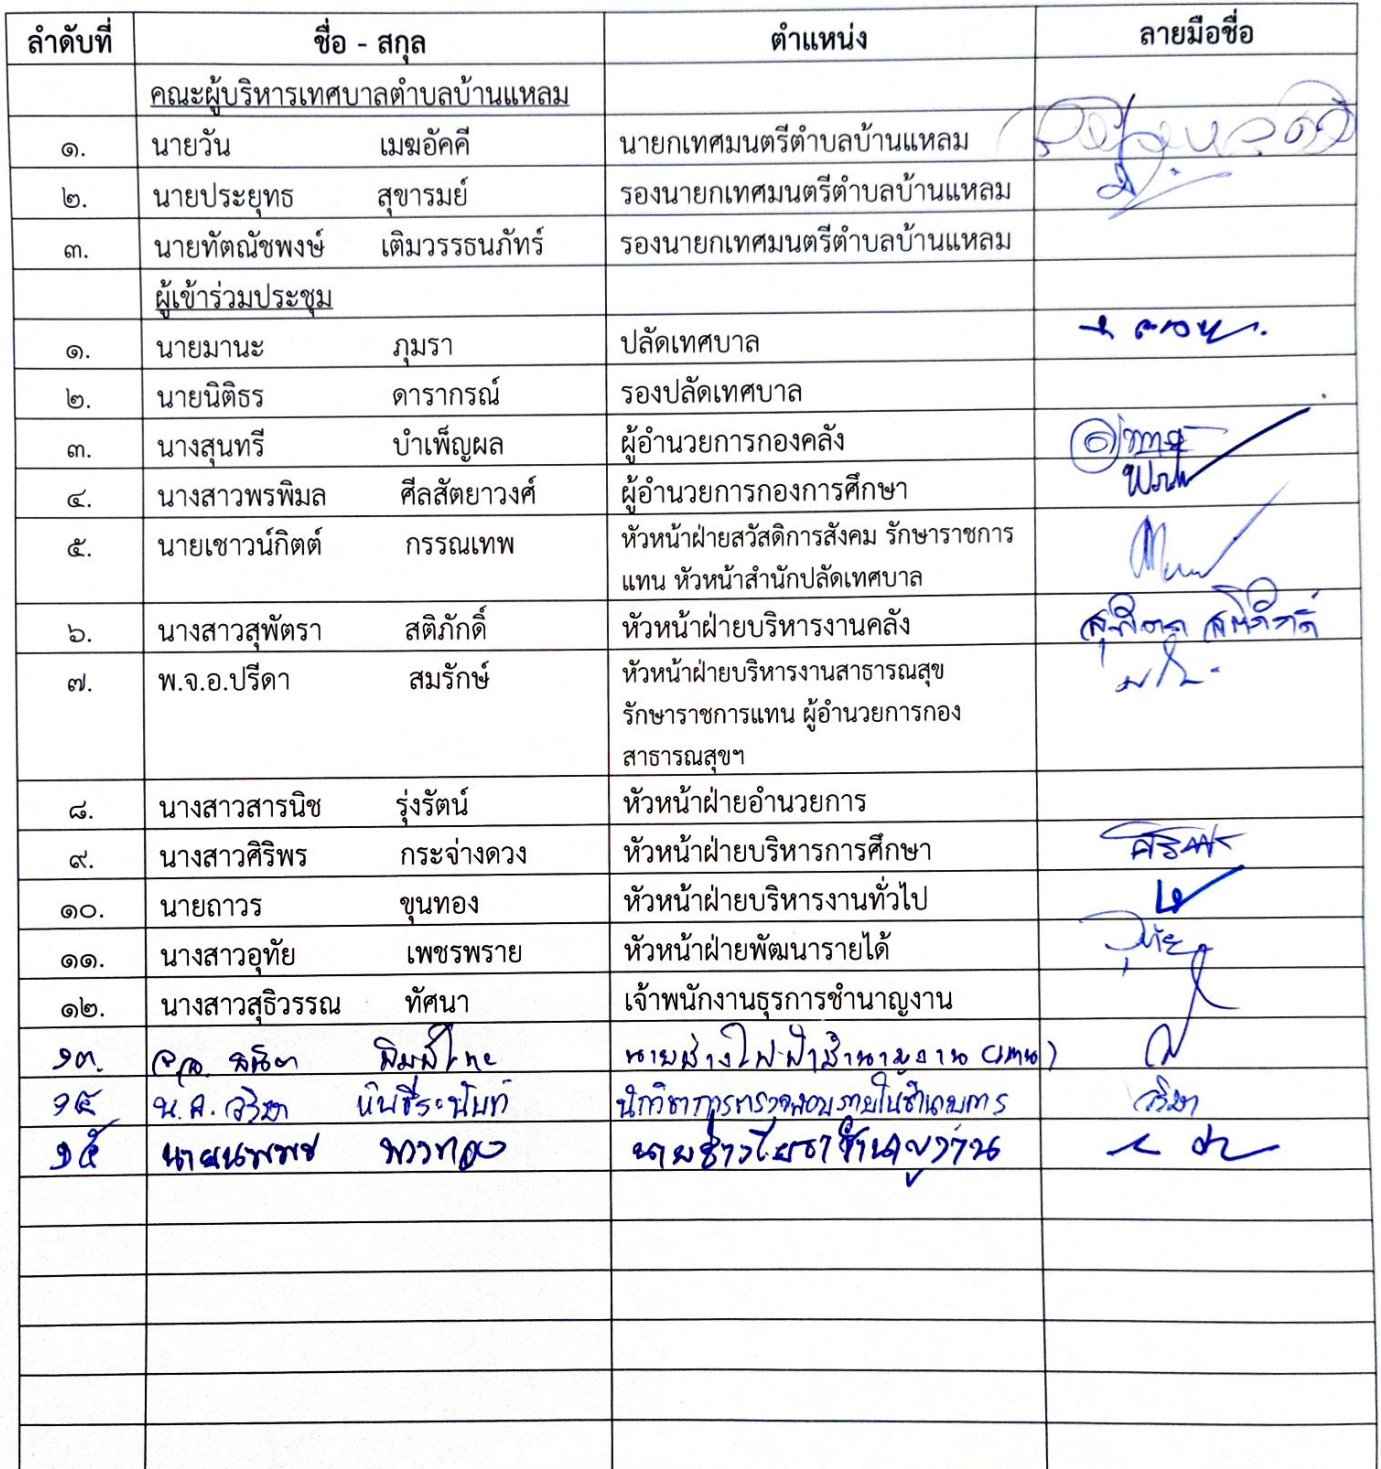 ลำดับที่ ชื่อ - สกุล ตำแหน่ง ลายมือชื่อ
คณะผู้บริหารเทศบาลตำบลบ้านแหลม
๑. นายวัน เมฆอัคคี นายกเทศมนตรีตำบลบ้านแหลม
๒. นายประยุทธ สุขารมย์ รองนายกเทศมนตรีตำบลบ้านแหลม
๓. นายทัตณัชพงษ์ เติมวรรธนภัทร์ รองนายกเทศมนตรีตำบลบ้านแหลม
ผู้เข้าร่วมประชุม
๑. นายมานะ ภุมรา ปลัดเทศบาล
๒. นายนิติธร ดารากรณ์ รองปลัดเทศบาล
๓. นางสุนทรี บำเพ็ญผล ผู้อำนวยการกองคลัง
๔. นางสาวพรพิมล ศีลสัตยาวงศ์ ผู้อำนวยการกองการศึกษา
๕. นายเชาวน์กิตต์ กรรณเทพ หัวหน้าฝ่ายสวัสดิการสังคม รักษาราชการ
แทน หัวหน้าสำนักปลัดเทศบาล
๖. นางสาวสุพัตรา สติภักดิ์ หัวหน้าฝ่ายบริหารงานคลัง สุพัตรา สติภักดิ์
๗. พ.จ.อ.ปรีดา สมรักษ์ หัวหน้าฝ่ายบริหารงานสาธารณสุข
รักษาราชการแทน ผู้อำนวยการกอง
สาธารณสุขฯ
๘. นางสาวสารนิช รุ่งรัตน์ หัวหน้าฝ่ายอำนวยการ
๙. นางสาวศิริพร กระจ่างดวง หัวหน้าฝ่ายบริหารการศึกษา ศิริพร
๑๐. นายถาวร ขุนทอง หัวหน้าฝ่ายบริหารงานทั่วไป
๑๑. นางสาวอุทัย เพชรพราย หัวหน้าฝ่ายพัฒนารายได้ อุทัย
๑๒. นางสาวสุธิวรรณ ทัศนา เจ้าพนักงานธุรการชำนาญงาน
๑๓. นายช่างไฟฟ้าชำนาญงาน (แทน)
๑๔ น.ส. นักวิชาการตรวจสอบภายในชำนาญการ
๑๕ นายช่างโยธาชำนาญงาน